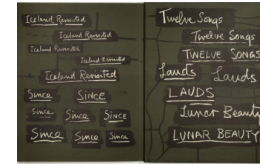 Iceland Revisited
Iceland Revisited
Iceland Revisited
Iceland Revisited
Iceland Revisited
Since SINCE
Since Since Since
Since Since Since
Twelve Songs
Twelve Songs
TWELVE SONGS
Lauds Lauds
LAUDS
Lunar Beauty
LUNAR BEAUTY